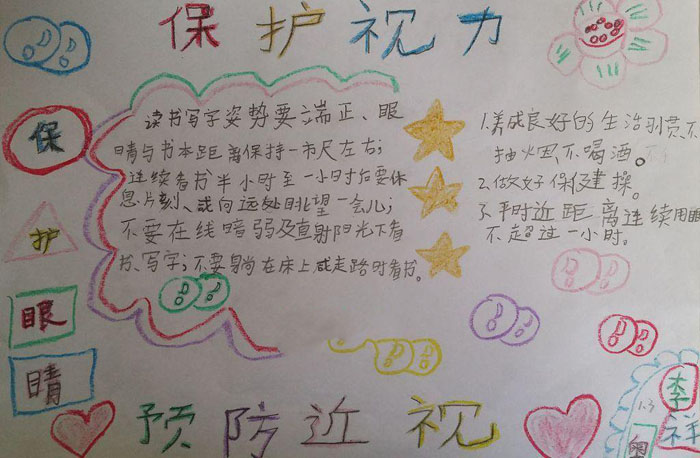 保护视力
保
护
眼
睛
读书写字姿势要端正、眼
睛与书本距离保持一市尺左右；
连续看书半小时至一小时后要休
息片刻、或向远处眺望一会儿；
不要在线暗弱及直射阳光下看
书、写字；不要躺在床上或走路时看书。
1.养成良好的生活习惯，不
抽烟、不喝酒。
2.做好保健操。
3.平时近距离连续用眼
不超过一小时。
预防近视
1.3
李
祥